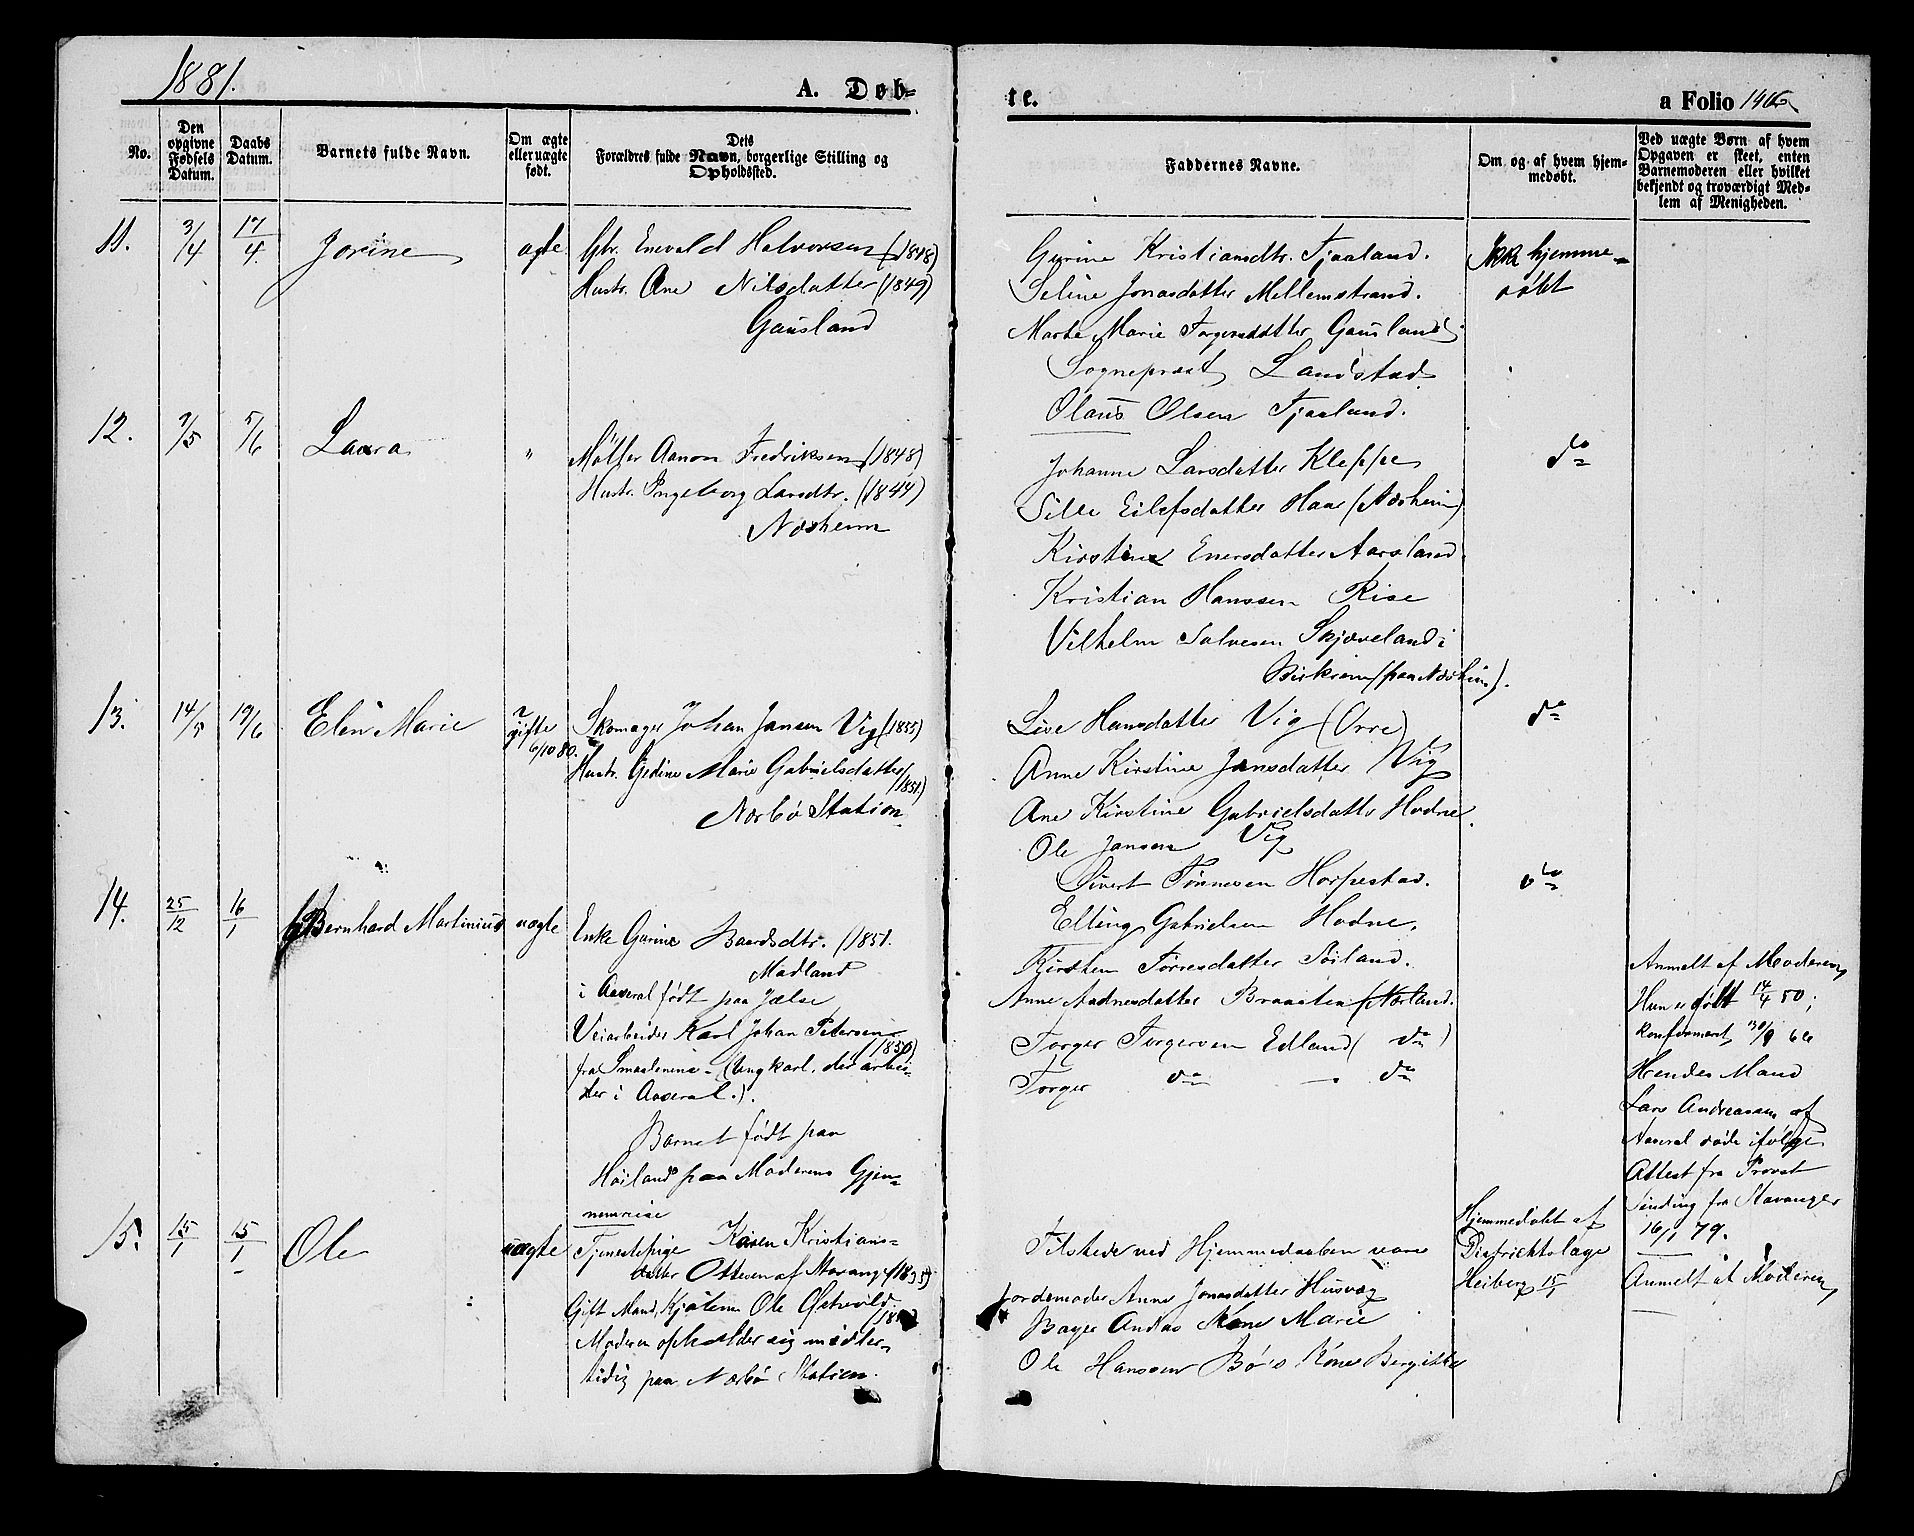 1881.
A. Døb-
te.
a Folio 146
No.
Den opgivne Fødsels Datum.
Daabs Datum.
Barnets fulde Navn.
Om ægte eller uægte født.
Dets Forældres fulde Navn, borgerlige Stilling og Opholdssted.
Faddernes Navne.
Om og af hvem hjemmedøbt.
Ved uægte Børn af hvem Opgaven er skeet, enten Barnemoderen eller hvilket bekjendt og troværdigt Medlem af Menigheden.
11.
3/4
17/4
Jorine
ægte
Gbr. Enevald Halvorsen (1848)
Hustr. Ane Nilsdatter (1849)
Gausland
Gurine Kristiansdtr. Tjaaland.
Seline Jonasdatter Mellemstrand.
Marte Marie Torgersdatter Gausland
Sogneprest Landstad
Olaus Olsen Tjaaland.
Ikke hjemme-
døbt
12.
7/5
5/6
Laura
"
Møller Aanon Fredriksen (1848)
Hustr. Ingeborg Larsdtr. (1844)
Nærheim
Johanne Larsdatter Kleppe
Sille Eilefsdatter Haar (Nærheim)
Kirstine Enersdatter Aarsland.
Kristian Hanssen Rise
Vilhelm Salvesen Skjæveland i
Birkrem (paa Nærheim).
do
13.
14/5
19/6
Elen Marie
gifte
6/10 80.
Skomager Johan Jansen Vig (1855)
Hustr. Gedine Marie Gabrielsdatter
(1851)
Nærbø Station
Lise Hansdatter Vig (Orre)
Anne Kirstine Jansdatter Vig
Ane Kirstine Gabrielsdatter Hodne.
Ole Jansen Vig
Sivert Tønnesen Horpestad.
Elling Gabrielsen Hodne.
do
14.
25/12
16/1
Bernhard Martinius
uægte
Enke Gurine Baardsdtr. (1851.
Madland
i Aaseral født paa Jælse
Veiarbeider Karl Johan Petersen
(1850)
fra Smaalenene - (Ungkarl, der arbei-
der i Aaseral.).
Barnet født paa
Høiland paa Moderens Gjen-
nemreise
Kirsten Torresdatter Søiland.
Anne Aadnesdatter Braaten (Nærland.
Torger Torgersen Edland (do)
Torger do - do
do
Anmelt af Moderen
Hun er født 14/4 50;
konfirmeret 30/9 66
Hendes Mand
Lars Andreassen af
Aaseral døde ifølge
Attest fra Provst
Sinding fra Stavanger
16/1 79.
15.
15/1
15/1
Ole
uægte
Tjenestepige Karen Kristians-
datter Ottesen af Stavanger
Gift Mand, Ole Østvold
Moderen opholder sig midler-
tidig paa Nærbø Station.
Tilstede ved Hjemmedaaben vare
Jordemoder Anne Jonasdatter Husvæg
Bager Andas Kone Marie
Ole Hanssen Bø's Kone Bergitte
Hjemmedøbt af
Distriktslæge
Heiberg 15/1
Anmelt af Moderen